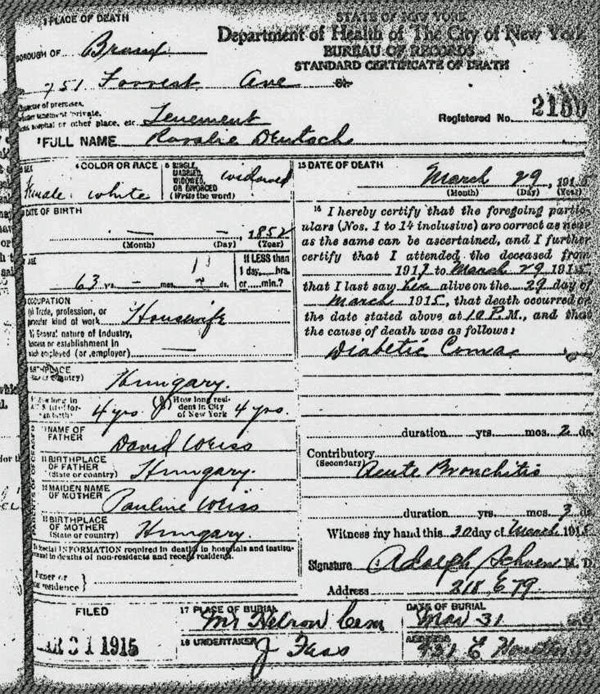 1 PLACE OF DEATH
STATE OF NEW YORK
Department of Health of The City of New York
BUREAU OF RECORDS
STANDARD CERTIFICATE OF DEATH
BOROUGH OF Bronx
751 Forrest Ave St.
Character of premises,
whether tenement, private,
hospital or other place, etc. Tenement
Registered No. 2150
2 FULL NAME Rosalie Deutsch
SEX Female
4 COLOR OR RACE white
5 SINGLE, MARRIED, WIDOWED, OR DIVORCED (Write the word) widowed
DATE OF BIRTH — — 1852
(Month) (Day) (Year)
AGE 63 yrs. — mos. — ds.
If LESS than
1 day,....hrs.
or ....min.?
OCCUPATION
(a) Trade, profession, or
particular kind of work Housewife
(b) General nature of Industry,
business or establishment in
which employed (or employer)
BIRTHPLACE
(State or country) Hungary.
How long in U.S. (if of foreign birth) 4 yrs.
How long resident in City of New York 4 yrs.
NAME OF FATHER David Weiss
11 BIRTHPLACE OF FATHER (State or country) Hungary.
MAIDEN NAME OF MOTHER Pauline Weiss
BIRTHPLACE OF MOTHER (State or country) Hungary.
Special INFORMATION required in deaths in hospitals and institutions
and in deaths of non-residents and recent residents.
Former or
residence
FILED
MAR 31 1915
15 DATE OF DEATH
March 29, 1915
(Month) (Day) (Year)
16 I hereby certify that the foregoing particulars
(Nos. 1 to 14 inclusive) are correct as near
as the same can be ascertained, and I further
certify that I attended the deceased from
to March 29 1915,
that I last saw her alive on the 29 day of
March 1915, that death occurred on
the date stated above at 10 P.M., and that
the cause of death was as follows:
Diabetic Coma
duration yrs. mos. 2 ds.
Contributory
(Secondary) Acute Bronchitis
duration yrs. mos. 3 ds.
Witness my hand this 30 day of March 1915
Signature Adolph M. D.
Address 218 E 79
17 PLACE OF BURIAL
Mt Hebron Cem
DATE OF BURIAL
Mar 31
18 UNDERTAKER
J
ADDRESS
E Houston